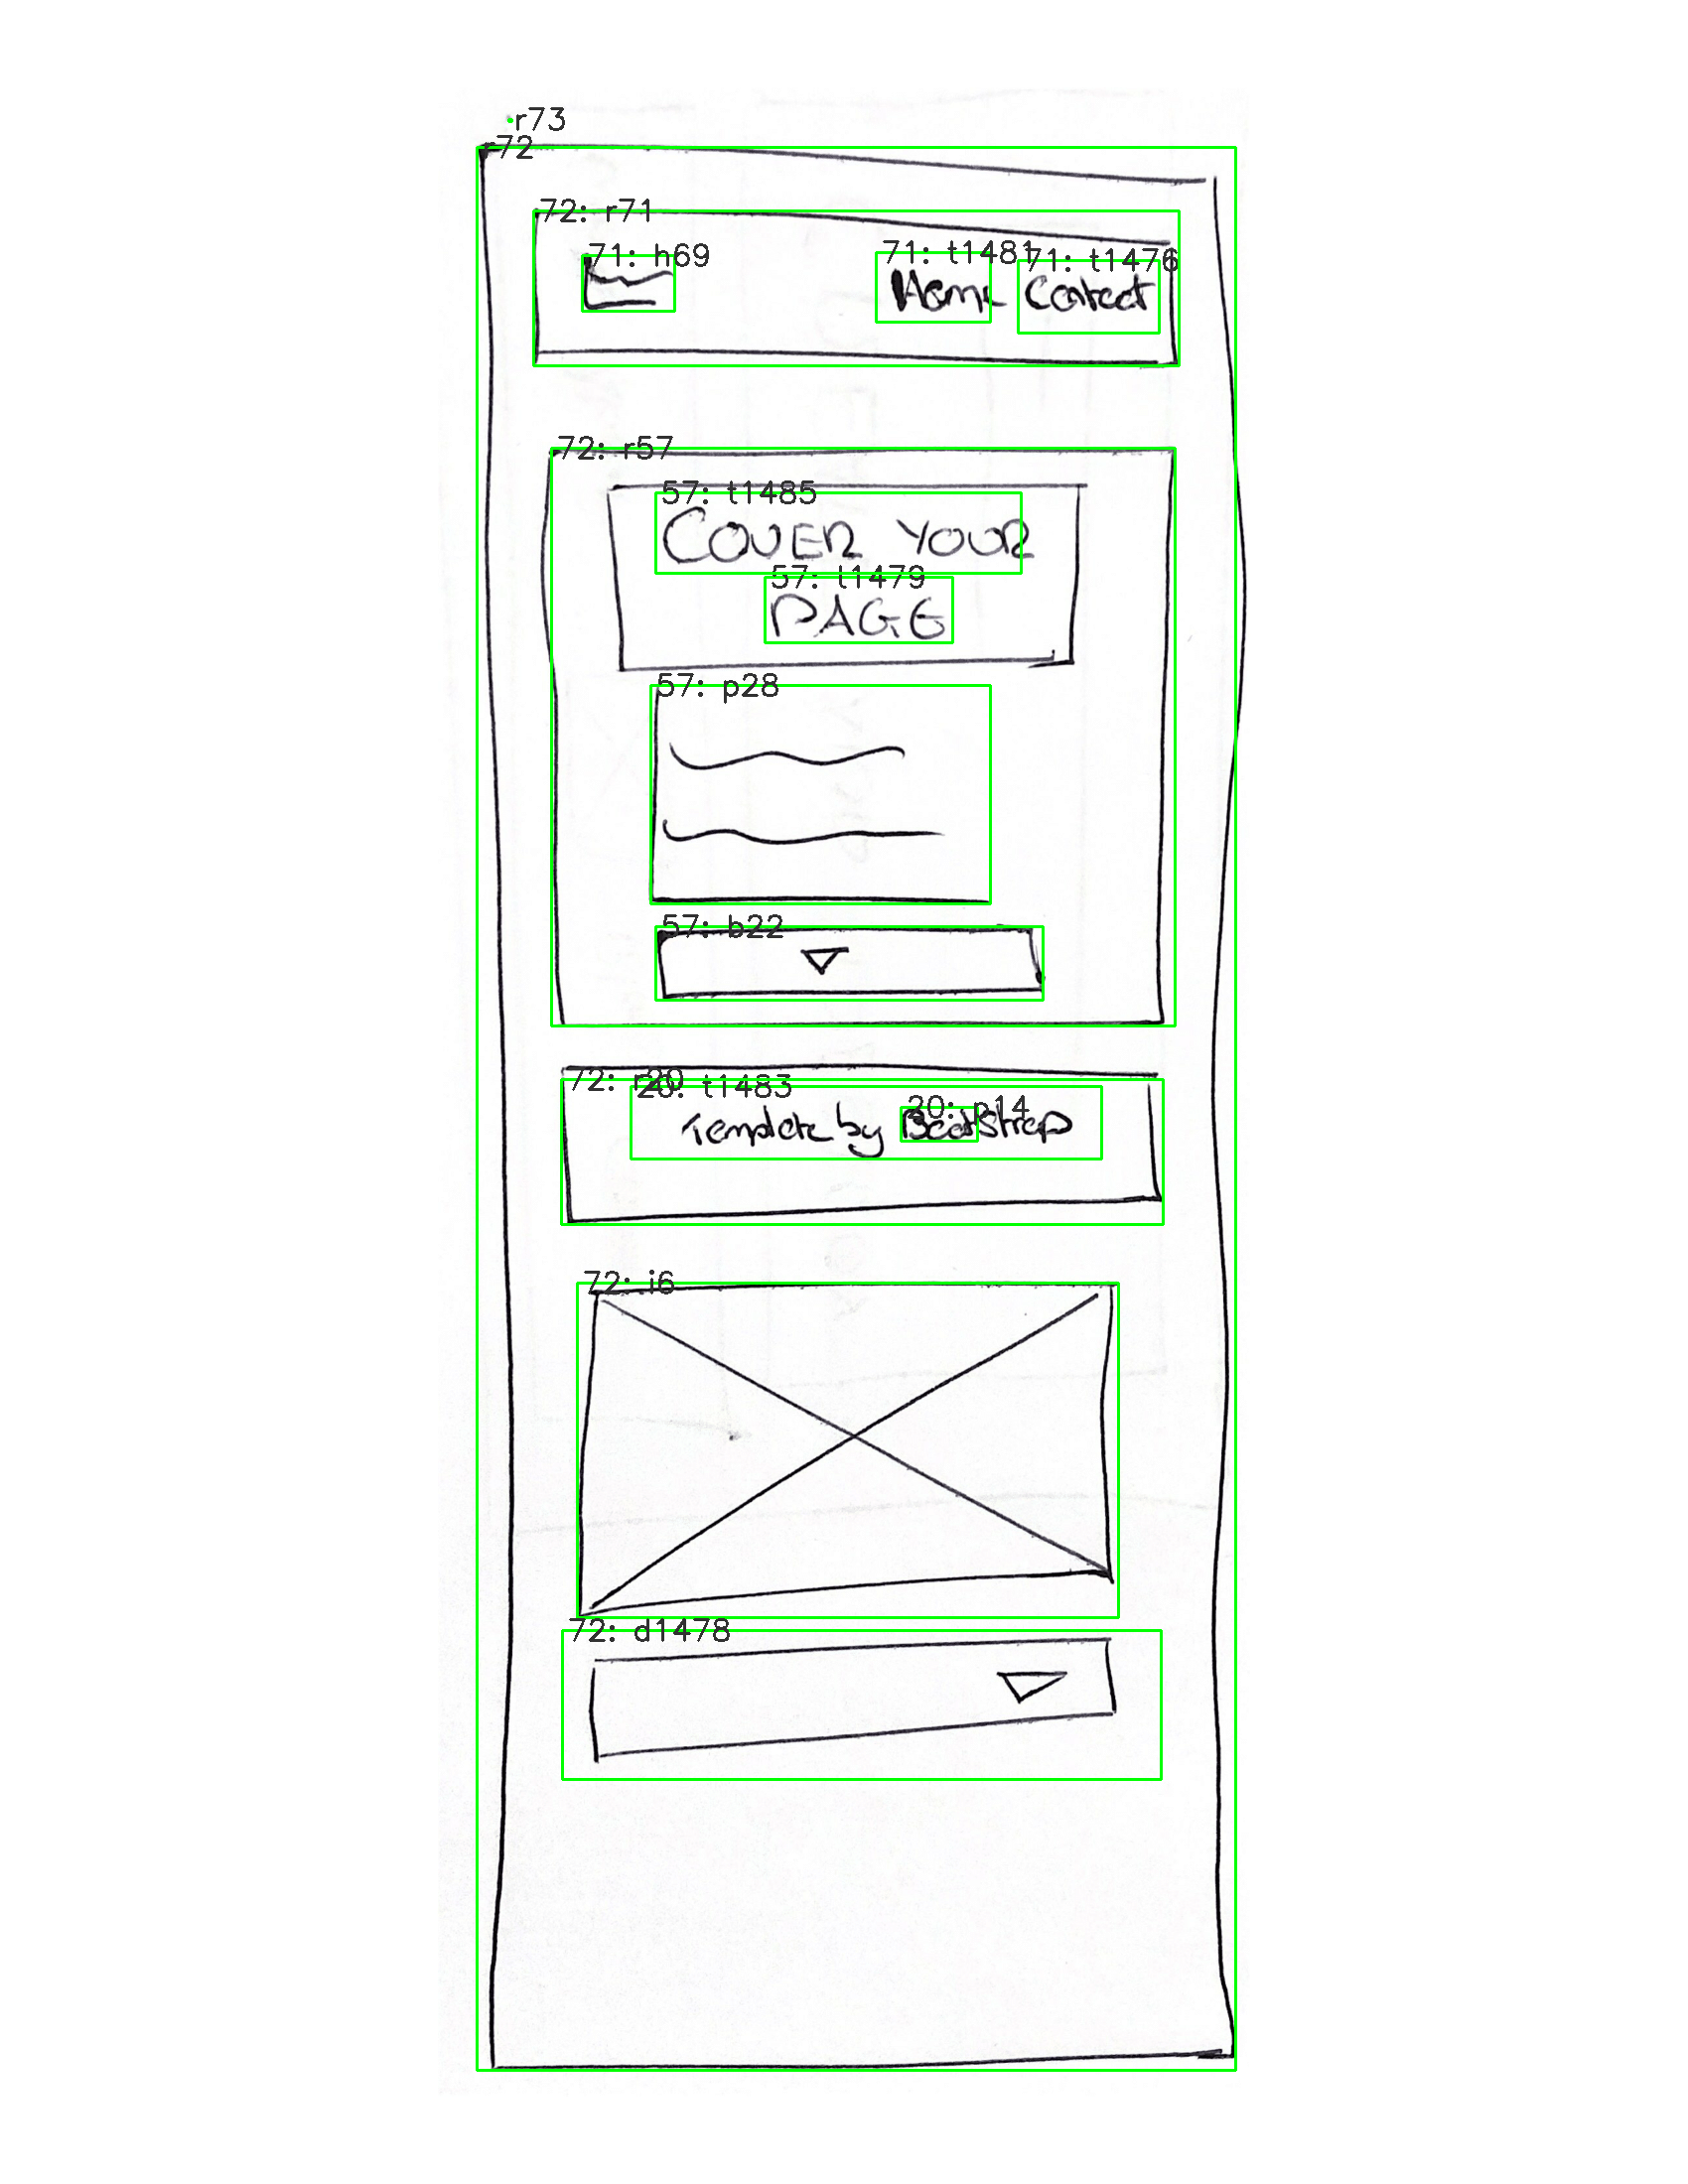 r73
r72
72: r71
71: h69
71: t1481
71: t1476
Home Contact
72: r57
57: t1485
COVER YOUR
57: t1479
PAGE
57: p28
57: b22
72: r20
20: t1483
20: p14
Template by BootStrap
72: i6
72: d1478